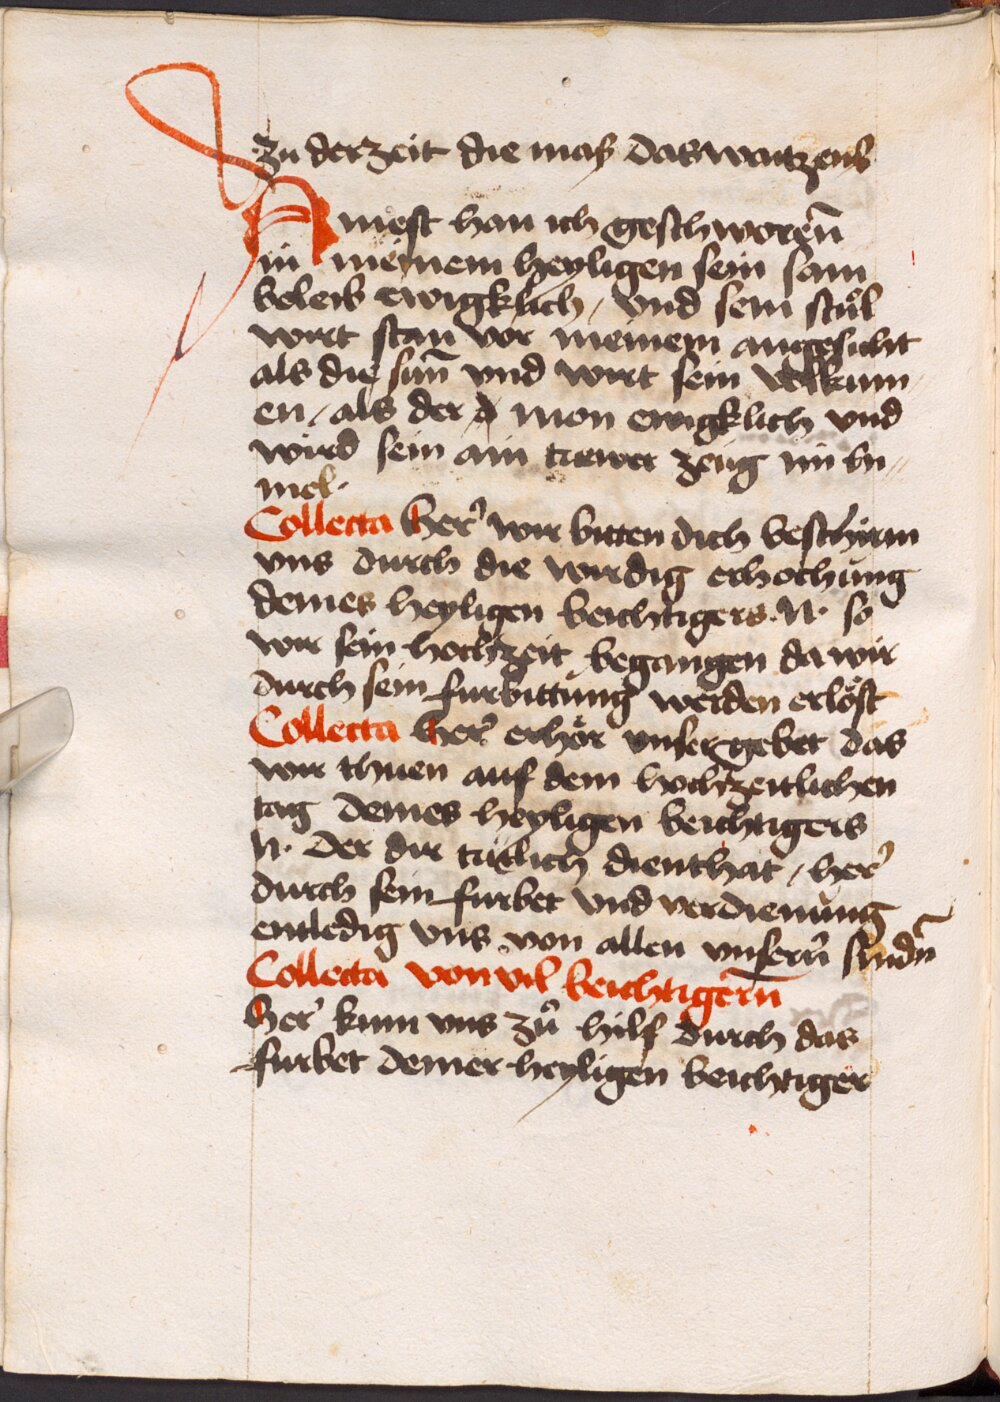 zu der zeit die maß das waitzens
Amest han ich geschworen̄
in meinem heyligen sein sam
beleib ewigklich / vnd sein stůl
wirt stan vor meinem angesicht
als die sun̄ vnd wirt sein volkum„
en / als der mon ewigklich vnd
wird sein ain trewer zeug im hi„
mel.
Collecta Her’ wir bitten dich beschirm
vns durch die wirdig erhochung
deines heyligen beichtigers .N. so
wir sein hochzeit begangen da wir
durch sein furbittung werden erlöst
Collecta Her’ erhör vnser gebet das
wir thuen auf dem hochzeitlichen
tag deines heyligen beichtigers
N. der dir taͤclich dienthat / her’
durch sein furbet vnd verdienung
entledig vns von allen vnsern̄ sundn̄
Collecta von vil beichtigern̄
Her’ kum vns zů hilf durch das
furbet deiner heyligen beichtiger